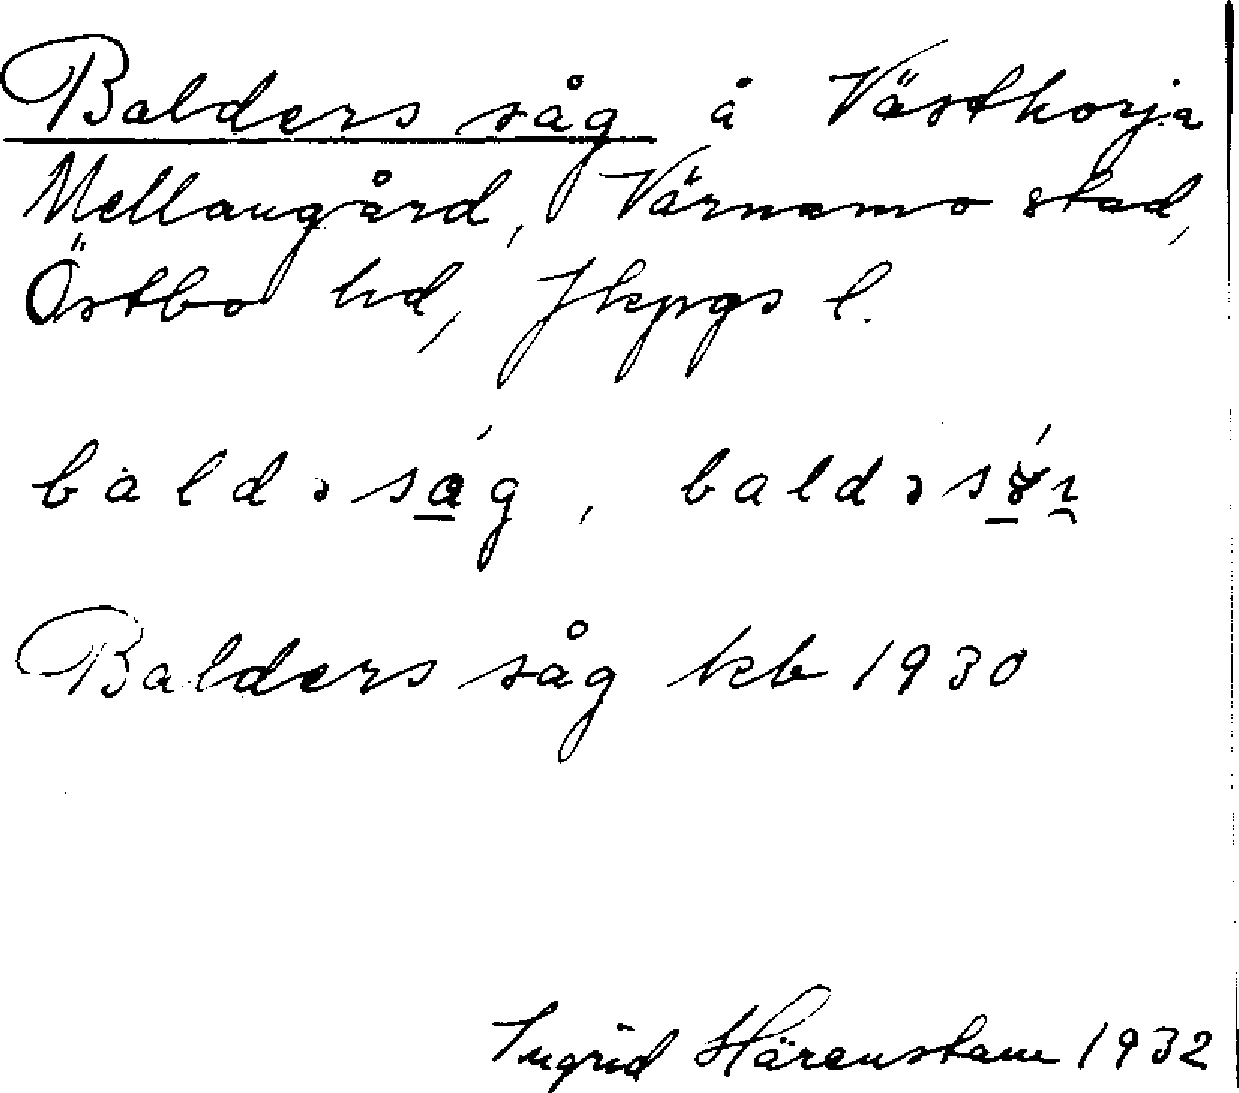 Balders såg å Västhorja
Mellangård, Värnamo stad,
Östbo hd, Jkpgs l.
baldəság, 
Balders såg kb 1930
Ingrid Härenstam 1932